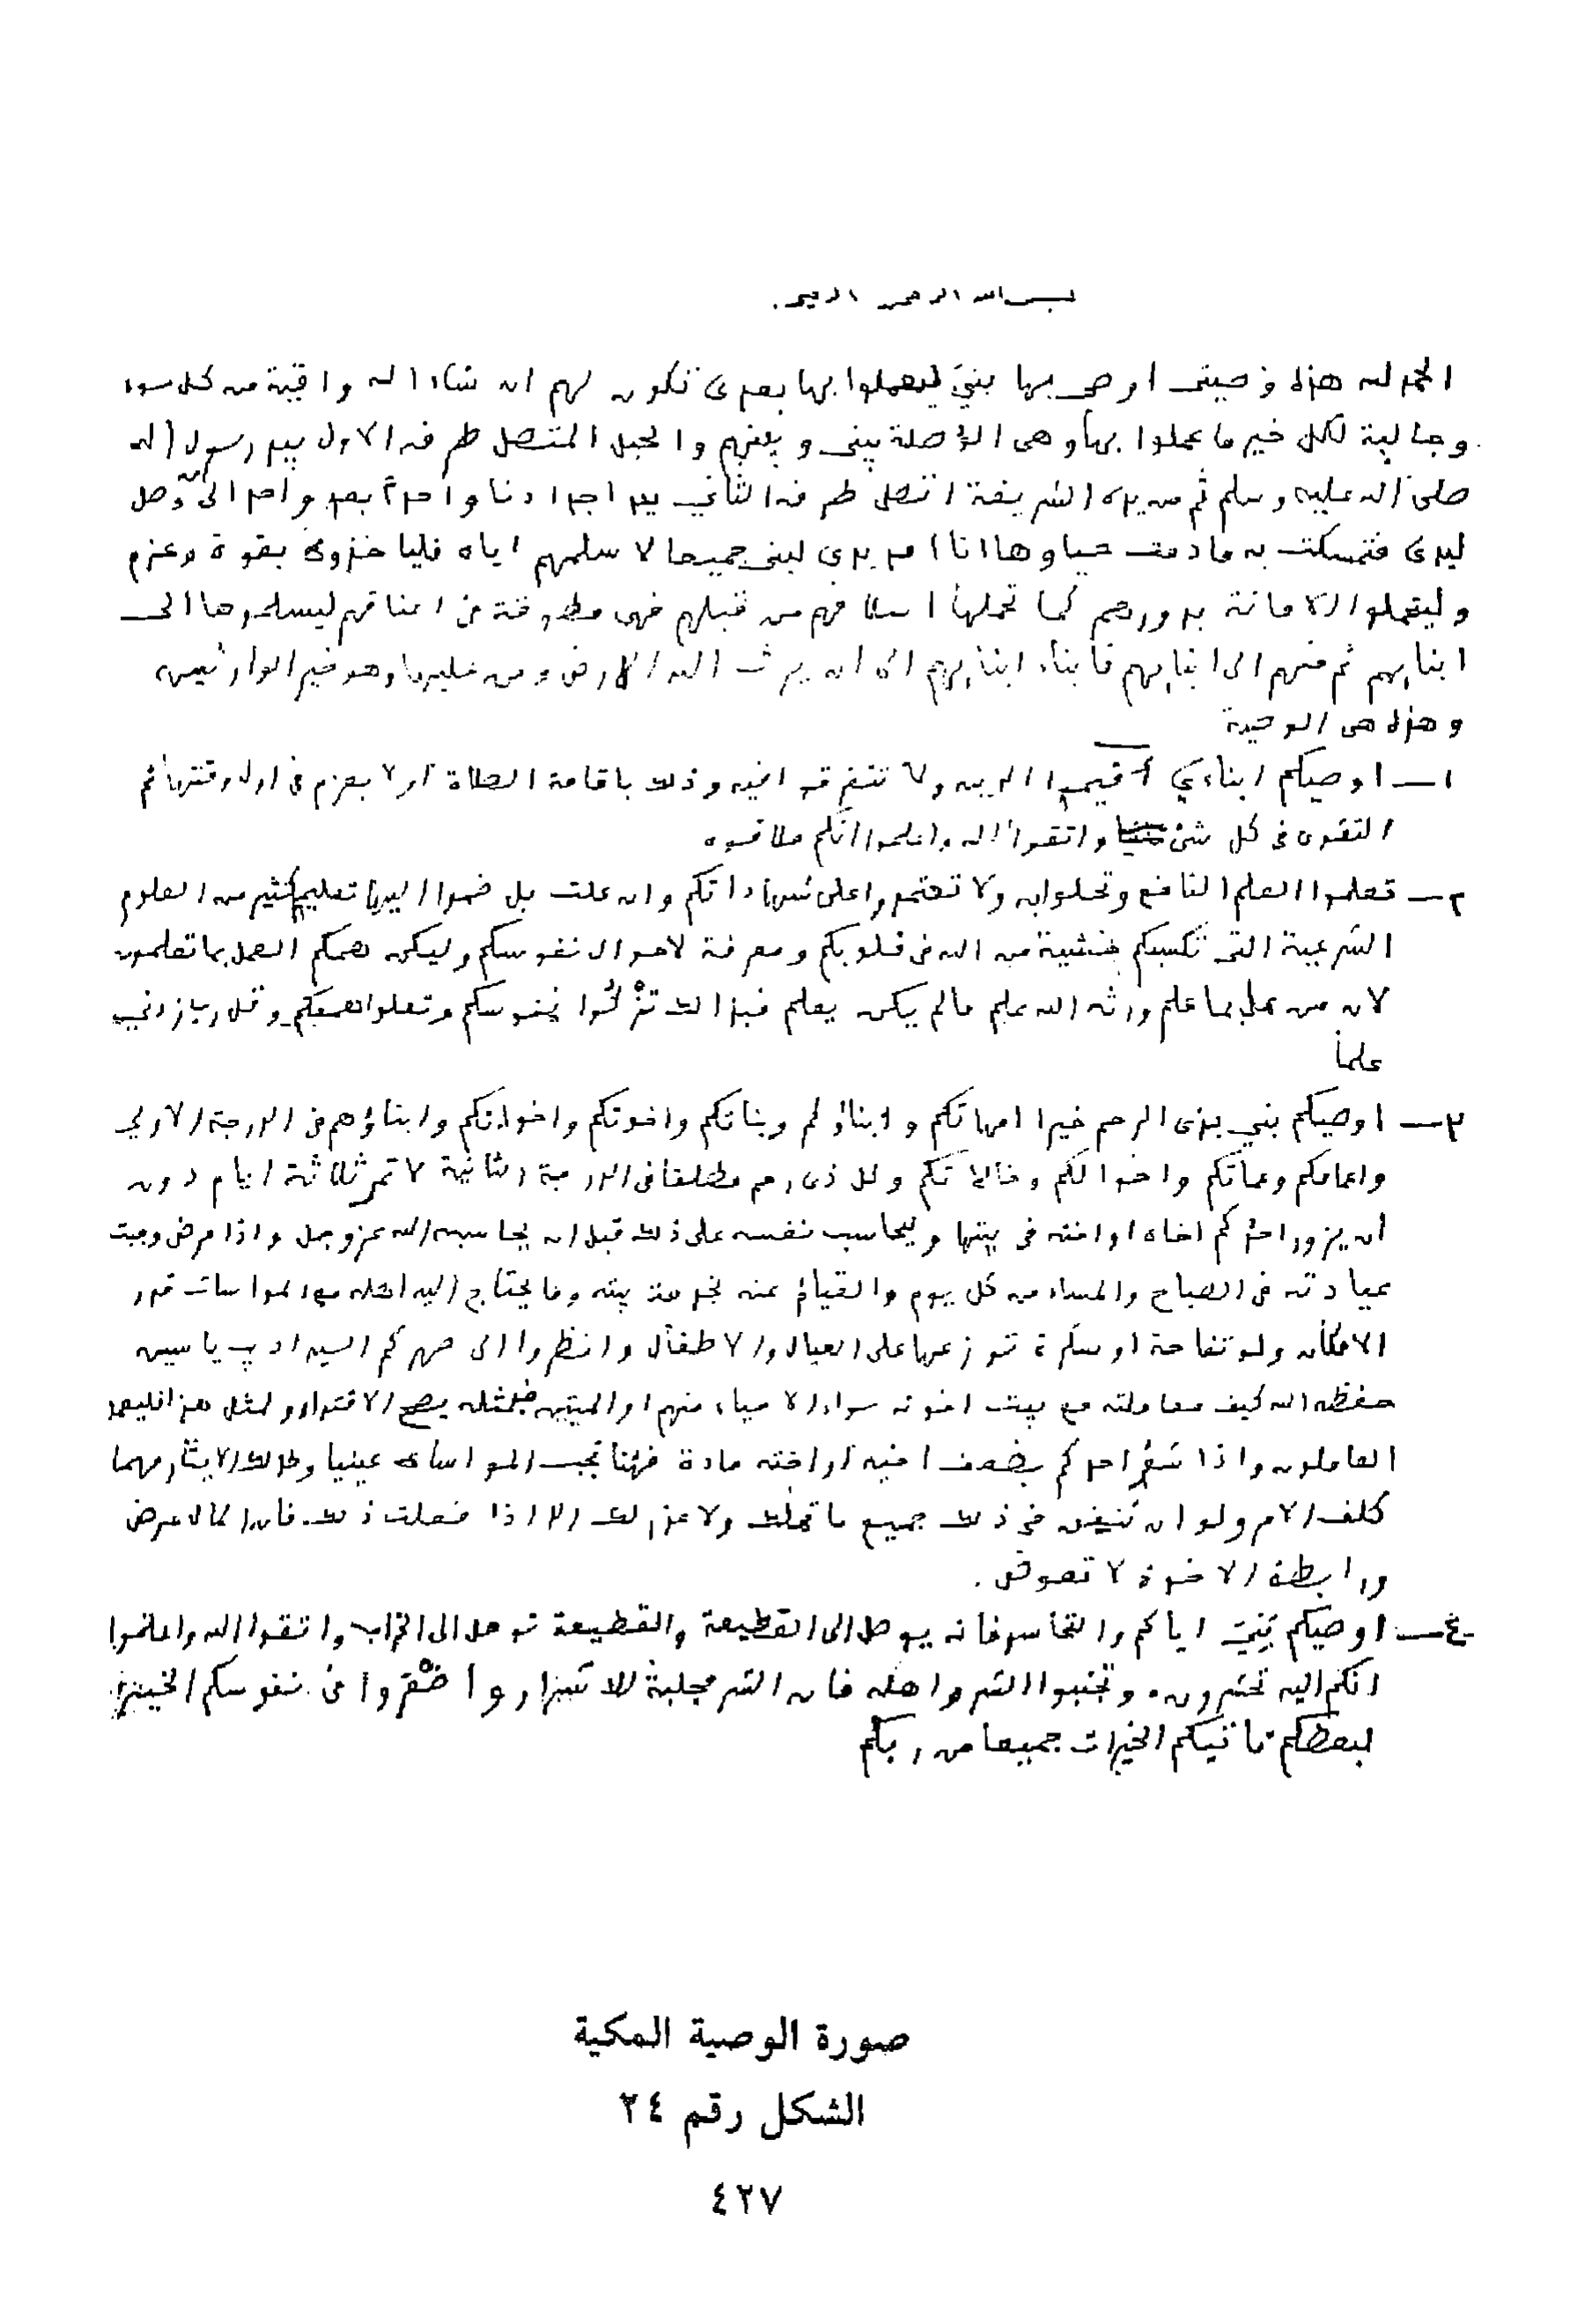 بسم الله الرحمن الرحيم.
الحمد لله هذه وصيتى اوصى بها بنيَّ ليعملوا بها بعدى تكون لهم ان شاء الله واقية من كل سوء
وجالبة لكل خير ما عملوا بها وهى الواصلة بينى وبينهم والحبل المتصل طرفه الاول بيد رسول الله
صلى الله عليه وسلم ثم من يده الشريفة اتصل طرفه الثاني بيد اجدادنا واحداً بعد واحد الى أن وصل
ليدى فتمسكت به مادمت حيا وها انا امد يدى لبنى جميعا لاسلمهم اياه فليأخذوه بقوة وعزم
وليتحملوا الامانة بدورهم كما تحملها اسلافهم من قبلهم فهى مطوقة فى اعناقهم ليسلموها الى
ابنايهم ثم منهم الى ابنايهم فابناء ابنايهم الى ان يرث الله الارض ومن عليها وهو خير الوارثين
وهذه هى الوصية
١ــ اوصيكم ابناءي أقيموا الدين ولا تتفرقوا فيه وذلك باقامة الصلاة اولا بعزم فى اول وقتها ثم
التقوى فى كل شئ واتقوا الله واعلموا انكم ملاقوه
٢ــ تعلموا العلم النافع وتحلوا به ولا تعتمدوا على شهاداتكم وان علت بل ضموا اليها تعليم كثير من العلوم
الشرعية التى تكسبكم خشية من الله فى قلوبكم ومعرفة لاحوال نفوسكم وليكن همكم العمل بما تعلمون
لان من عمل بما علم ورثه الله علم مالم يكن يعلم فبذالك تزْكُوا نفوسكم وتعلوا هممكم وقل رب زدني
علما
٣ــ اوصيكم بني بذى الرحم خيرا امهاتكم وابناؤكم وبناتكم واخوتكم واخواتكم وابناؤهم فى الدرجة الاولي
واعمامكم وعماتكم واخوالكم وخالاتكم وكل ذى رحم مطلقا فى الدرجة الثانية لا تمر ثلاثة ايام دون
أن يزور احدكم اخاه او اخته فى بيتها وليحاسب نفسه على ذلك قبل ان يحاسبه الله عز وجل واذا مرض وجبت
عيادته فى الصباح والمساء من كل يوم والقيام عنه بخدمة بيته وما يحتاج اليه اهله مع المواسات قدر
الامكان ولو تفاحة او سكرة توزعها على العيال والاطفال وانظروا الى صهركم السيد اديب ياسين
حفظه الله كيف معاملته مع بيت اخوته سواء الاحياء منهم او الميتين فبمثله يصح الاقتداء ولمثل هذا فليعمل
العاملون واذا شعر احدكم بضعف اخيه او اخته مادة فهنا تجب المواساة عينيا وكذلك الايثار مهما
كلف الامر ولو ان تنفق فى ذلك جميع ما تملك ولا عذر لك الا اذا فعلت ذلك فان المال عرض
ورابطة الاخوة لا تعوض.
٤ــ اوصيكم بَنِيَّ اياكم والتحاسد فانه يوصل الى القطيعة والقطيعة توصل الى الخراب واتقوا الله واعلموا
انكم اليه تحشرون. وتجنبوا الشر واهله فان الشر مجلبة للاشرار وأضْمِروا فى نفوسكم الخير
لبعضكم تأتيكم الخيرات جميعا من ربكم
صورة الوصية المكية
الشكل رقم ٢٤
٤٢٧